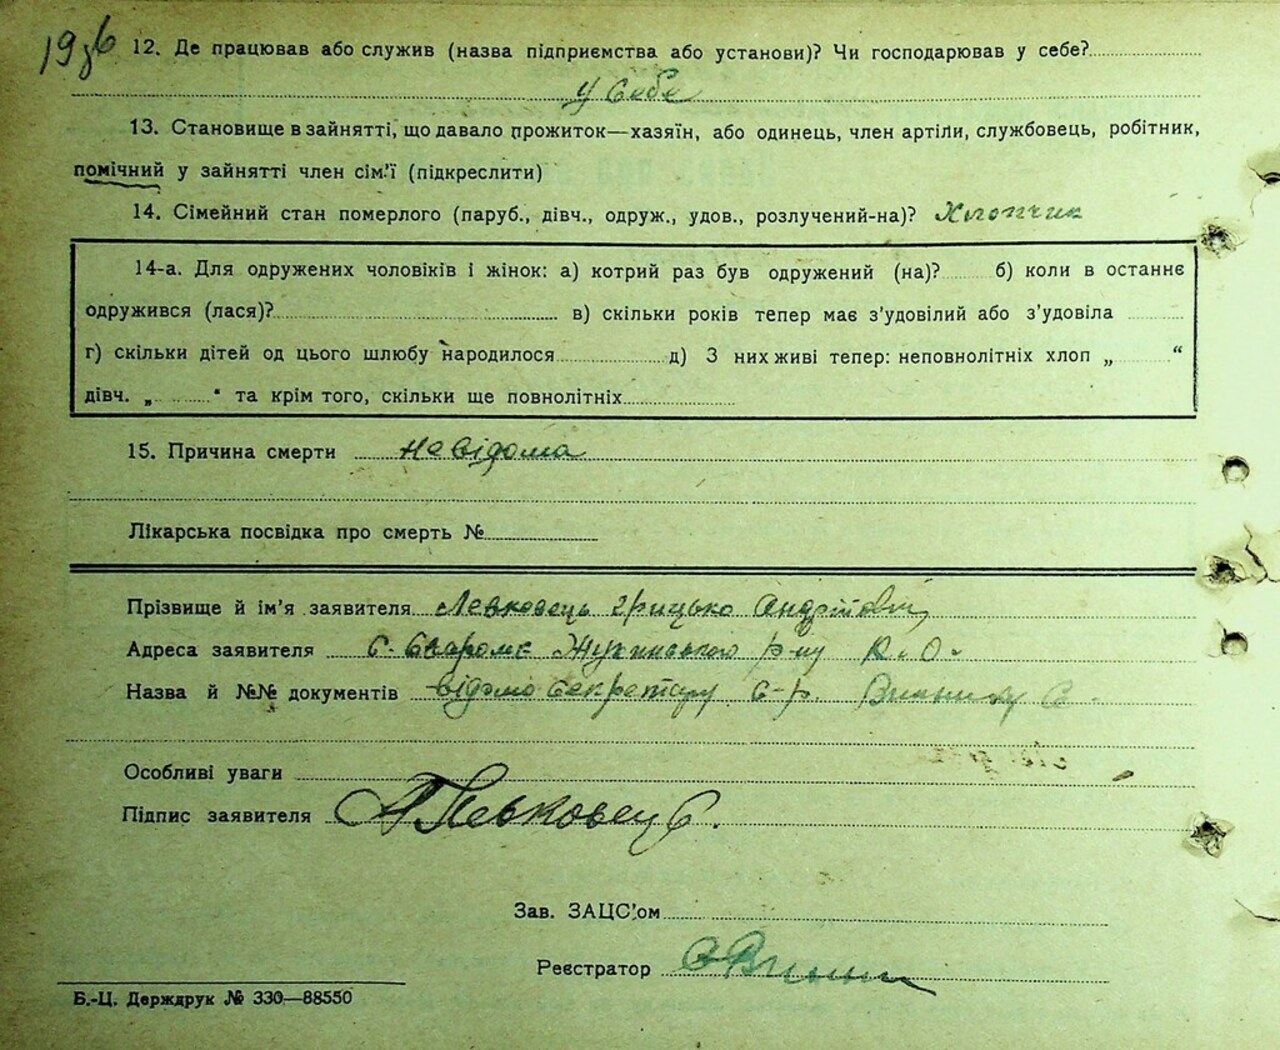 12. Де працював або служив (назва підприємства або установи)? Чи господарював у себе?
у себе
13. Становище в зайнятті, що давало прожиток—хазяїн, або одинець, член артіли, службовець, робітник,
помічний у зайнятті член сім'ї (підкреслити)
14. Сімейний стан померлого (паруб., дівч., одруж., удов., розлучений-на)? Хлопчик
14-а. Для одружених чоловіків і жінок: а) котрий раз був одружений (на)? б) коли в останнє
одружився (лася)? в) скільки років тепер має з'удовілий або з'удовіла
г) скільки дітей од цього шлюбу народилося д) З них живі тепер: неповнолітніх хлоп „ “
дівч. „ “ та крім того, скільки ще повнолітніх
15. Причина смерти невідома
Лікарська посвідка про смерть №
Прізвище й ім'я заявителя Левковець Грицько Андрійович
Адреса заявителя с. Сваромє Жукинського р-ну К. О.
Назва й №№ документів відомо секретару с-р.
Особливі уваги
Підпис заявителя Левковець
Зав. ЗАЦС'ом
Реєстратор
Б.-Ц. Держдрук № 330—88550